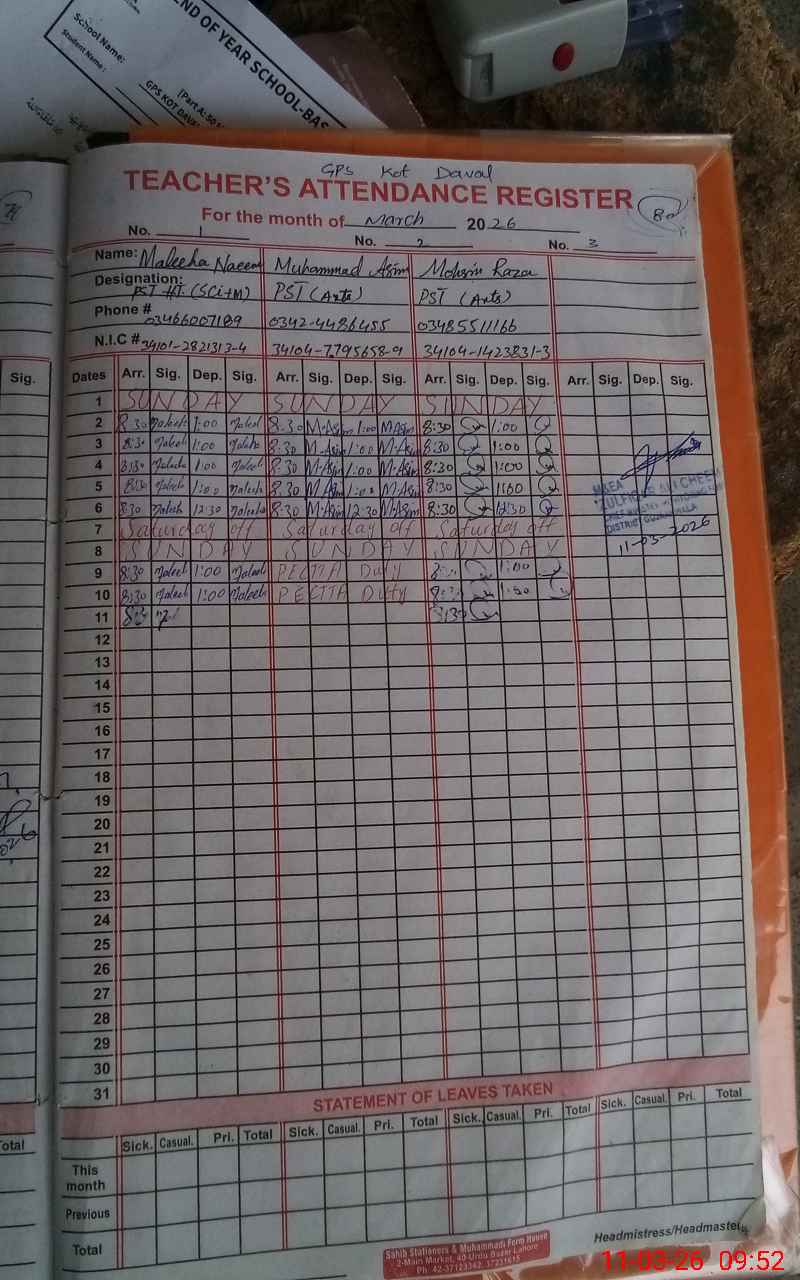 END OF YEAR SCHOOL-BAS
School Name:
Student Name :
[Part A: 50
GPS KOT DAVA
GPS Kot Daval
TEACHER'S ATTENDANCE REGISTER
80
For the month of March 2026
No. 1 No. 2 No. 3
Name: Maleeha Naeem Muhammad Asim Mohsin Raza
Designation: PST HT. (SCi+M) PST (Arts) PST (Arts)
Phone # 03466007189 0342-4486455 03485511166
N.I.C # 34101-2821313-4 34104-7795658-9 34104-1423831-3
Sig.
Dates Arr. Sig. Dep. Sig. Arr. Sig. Dep. Sig. Arr. Sig. Dep. Sig. Arr. Sig. Dep. Sig.
1 SUNDAY SUNDAY SUNDAY
2 8:30 Maleeh 1:00 Maleeh 8:30 M-Asim 1:00 M-Asim 8:30 1:00
3 8:30 Maleeh 1:00 Maleeh 8:30 M-Asim 1:00 M-Asim 8:30 1:00
4 8:30 Maleeh 1:00 Maleeh 8:30 M-Asim 1:00 M-Asim 8:30 1:00
5 8:30 Maleeh 1:00 Maleeh 8:30 M-Asim 1:00 M-Asim 8:30 1:00
6 8:30 Maleeh 12:30 Maleeh 8:30 M-Asim 12:30 M-Asim 8:30 12:30
7 Saturday off Saturday off Saturday off
8 SUNDAY SUNDAY SUNDAY
9 8:30 Maleeh 1:00 Maleeh PECTTA Duty 8:30 1:00
10 8:30 Maleeh 1:00 Maleeh PECTTA Duty 8:30 1:00
11 8:30 8:30
MAEA
ZULFIQAR ALI CHEEM
DISTRICT GUJRANWALLA
11-03-2026
12
13
14
15
16
17
18
19
20
21
22
23
24
25
26
27
28
29
30
31
STATEMENT OF LEAVES TAKEN
Sick. Casual. Pri. Total Sick. Casual. Pri. Total Sick. Casual. Pri. Total Sick. Casual. Pri. Total
This month
Previous
Total
otal
Sahib Stationers & Muhammadi Form House
2-Main Market, 40-Urdu Bazar Lahore
Ph: 42-37123342, 37231615
Headmistress/Headmaster
11-03-26 09:52